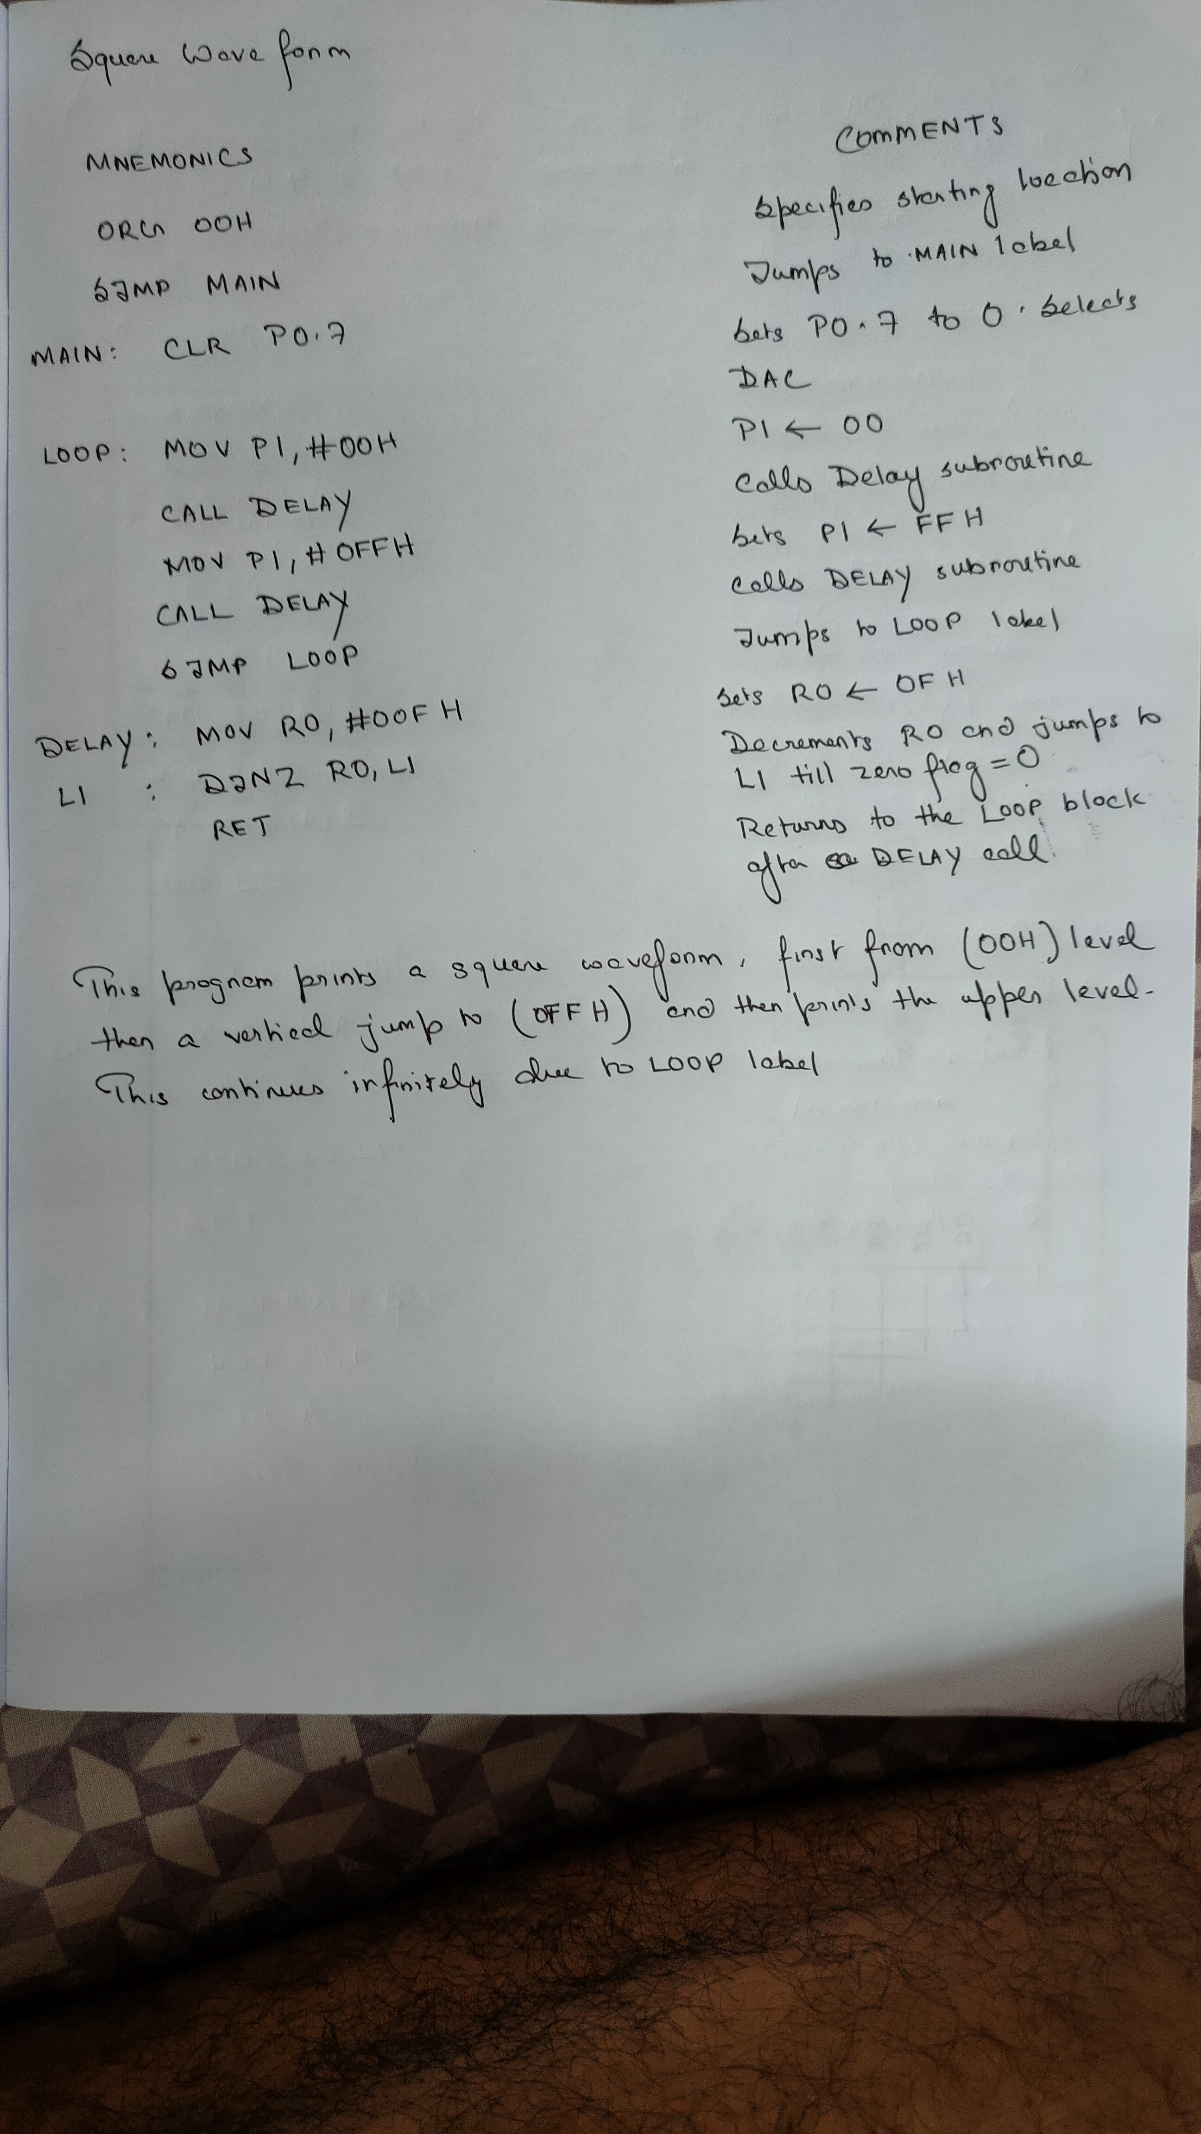 Square Wave form
MNEMONICS COMMENTS
ORG 00H Specifies starting location
SJMP MAIN Jumps to MAIN label
MAIN: CLR P0.7 Sets P0.7 to 0. Selects
DAC
LOOP: MOV P1, #00H P1 ← 00
CALL DELAY Calls Delay subroutine
MOV P1, #0FFH Sets P1 ← FFH
CALL DELAY Calls DELAY subroutine
SJMP LOOP Jumps to LOOP label
DELAY: MOV R0, #00FH Sets R0 ← 0FH
L1 : DJNZ R0, L1 Decrements R0 and jumps to
L1 till zero flag = 0
RET Returns to the LOOP block
after DELAY call.
This program prints a square waveform, first from (00H) level
then a vertical jump to (0FFH) and then prints the upper level.
This continues infinitely due to LOOP label